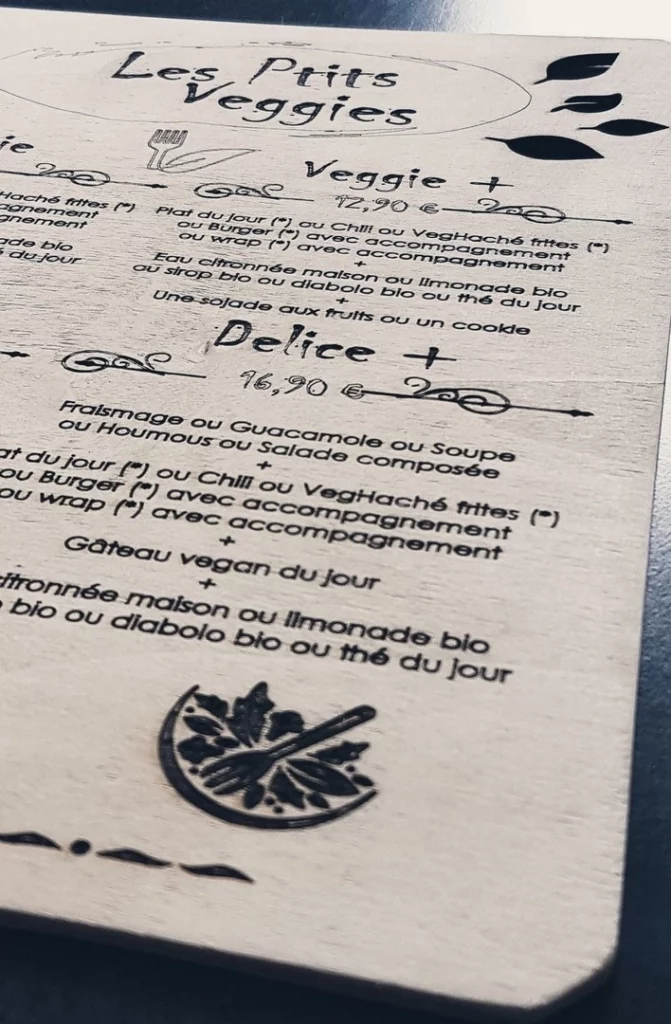 Les Ptits
Veggies
ie
Veggie +
12,90 €
Haché frites (*)
agnement
gnement
ade bio
du jour
Plat du jour (*) ou Chili ou VegHaché frites (*)
ou Burger (*) avec accompagnement
ou wrap (*) avec accompagnement
+
Eau citronnée maison ou limonade bio
ou sirop bio ou diabolo bio ou thé du jour
+
Une sojade aux fruits ou un cookie
Delice +
16,90 €
Fraismage ou Guacamole ou Soupe
ou Houmous ou Salade composée
+
at du jour (*) ou Chili ou VegHaché frites (*)
ou Burger (*) avec accompagnement
ou wrap (*) avec accompagnement
+
Gâteau vegan du jour
+
citronnée maison ou limonade bio
bio ou diabolo bio ou thé du jour